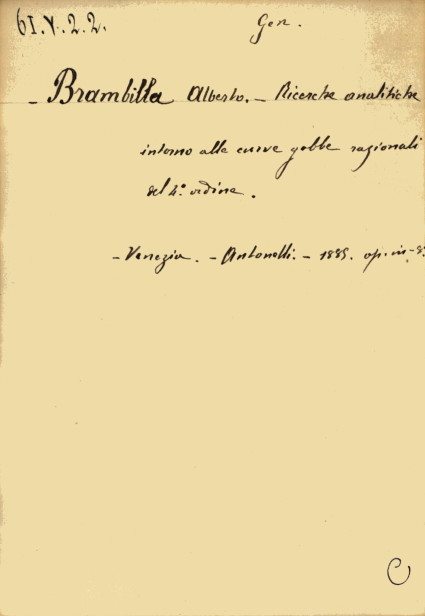 61.V.2.2.
Gen.
- Brambilla Alberto. - Ricerche analitiche
intorno alle curve gobbe razionali
del 4.º ordine.
- Venezia. - Antonelli. - 1885. op. in-8º
C